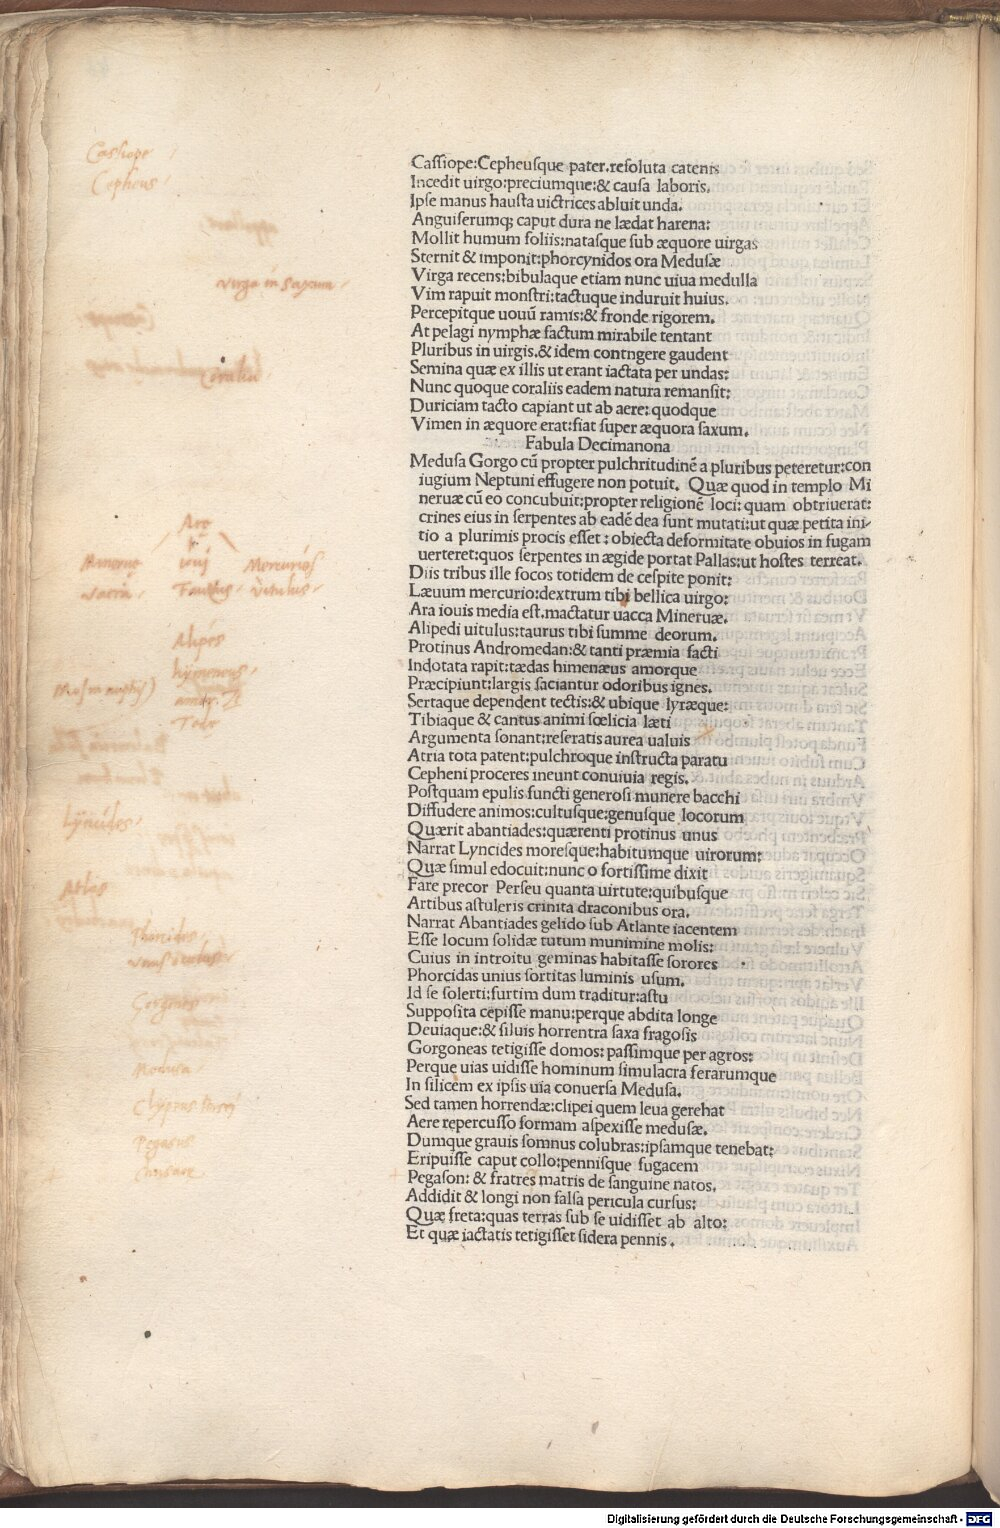 Cassiope
Cepheus
Cassiope:Cepheusque pater.resoluta catenis
Incedit uirgo:preciumque:& causa laboris.
Ipse manus hausta uictrices abluit unda.
Anguiferumq; caput dura ne lædat harena:
Mollit humum foliis:natasque sub æquore uirgas
Sternit & imponit:phorcynidos ora Medusæ
Virga recens:bibulaque etiam nunc uiua medulla
Vim rapuit monstri:tactuque induruit huius.
Percepitque uouū ramis:& fronde rigorem.
At pelagi nymphæ factum mirabile tentant
Pluribus in uirgis.& idem contngere gaudent
Semina quæ ex illis ut erant iactata per undas:
Nunc quoque coraliis eadem natura remansit:
Duriciam tacto capiant ut ab aere:quodque
Vimen in æquore erat:fiat super æquora saxum.
Fabula Decimanona
Medusa Gorgo cū propter pulchritudinē a pluribus peteretur:con
iugium Neptuni effugere non potuit. Quæ quod in templo Mi
neruæ cū eo concubuit:propter religionē loci: quam obtriuerat:
crines eius in serpentes ab eadē dea sunt mutati:ut quæ petita ini-
tio a plurimis procis esset: obiecta deformitate obuios in fugam
uerteret:quos serpentes in ægide portat Pallas:ut hostes terreat.
Diis tribus ille focos totidem de cespite ponit:
Læuum mercurio:dextrum tibi bellica uirgo:
Ara iouis media est.mactatur uacca Mineruæ.
Alipedi uitulus:taurus tibi summe deorum.
Protinus Andromedan:& tanti præmia facti
Indotata rapit:tædas himenæus amorque
Præcipiunt:largis saciantur odoribus ignes.
Sertaque dependent tectis:& ubique lyræque:
Tibiaque & cantus animi fœlicia læti
Argumenta sonant:reseratis aurea ualuis
Atria tota patent:pulchroque instructa paratu
Cepheni proceres ineunt conuiuia regis.
Postquam epulis functi generosi munere bacchi
Diffudere animos:cultusque:genusque locorum
Quærit abantiades:quærenti protinus unus
Narrat Lyncides moresque:habitumque uirorum:
Quæ simul edocuit:nunc o fortissime dixit
Fare precor Perseu quanta uirtute:quibusque
Artibus astuleris crinita draconibus ora.
Narrat Abantiades gelido sub Atlante iacentem
Esse locum solidæ tutum munimine molis:
Cuius in introitu geminas habitasse sorores
Phorcidas unius sortitas luminis usum.
Id se solerti:furtim dum traditur:astu
Supposita cepisse manu:perque abdita longe
Deuiaque:& siluis horrentra saxa fragosis
Gorgoneas tetigisse domos: passimque per agros:
Perque uias uidisse hominum simulacra ferarumque
In silicem ex ipsis uia conuersa Medusa.
Sed tamen horrendæ:clipei quem leua gerehat
Aere repercusso formam aspexisse medusæ.
Dumque grauis somnus colubras:ipsamque tenebat:
Eripuisse caput collo:pennisque fugacem
Pegason: & fratres matris de sanguine natos.
Addidit & longi non falsa pericula cursus:
Quæ freta:quas terras sub se uidisset ab alto:
Et quæ iactatis tetigisset sidera pennis.
virga in saxum
Coraliu
Mineruę
vacca
Iouis
Taurus
Mercurius
vitulus
Alipes
hymeneus
Tede
Lyncides
Atlas
Phorcides
Gorgones
Medusa
Clypeus Persei
Pegasus
Chrisaor
Digitalisierung gefördert durch die Deutsche Forschungsgemeinschaft - DFG